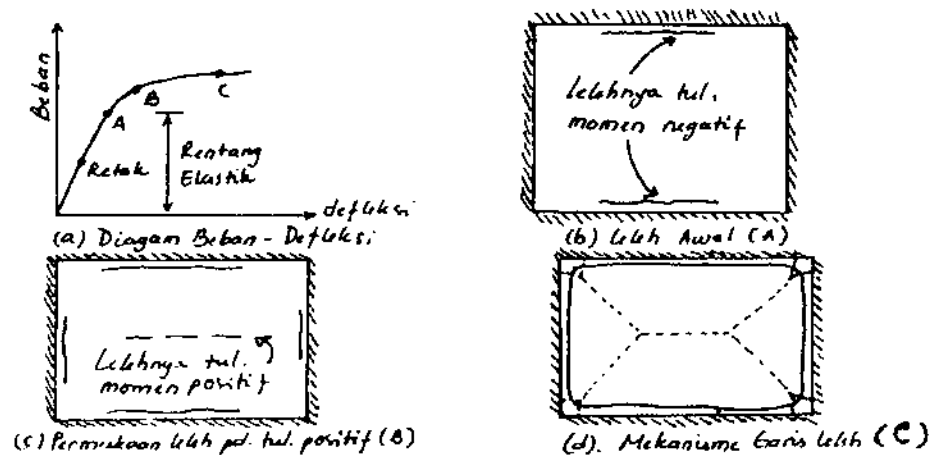 Beban
A
B
C
Retak
Rentang
Elastik
defleksi
(a) Diagam Beban - Defleksi
Lelehnya tul.
momen negatif
(b) Leleh Awal (A)
Lelehnya tul.
momen positif
(c) Permukaan leleh pd. tul. positif (B)
(d). Mekanisme Garis leleh (C)